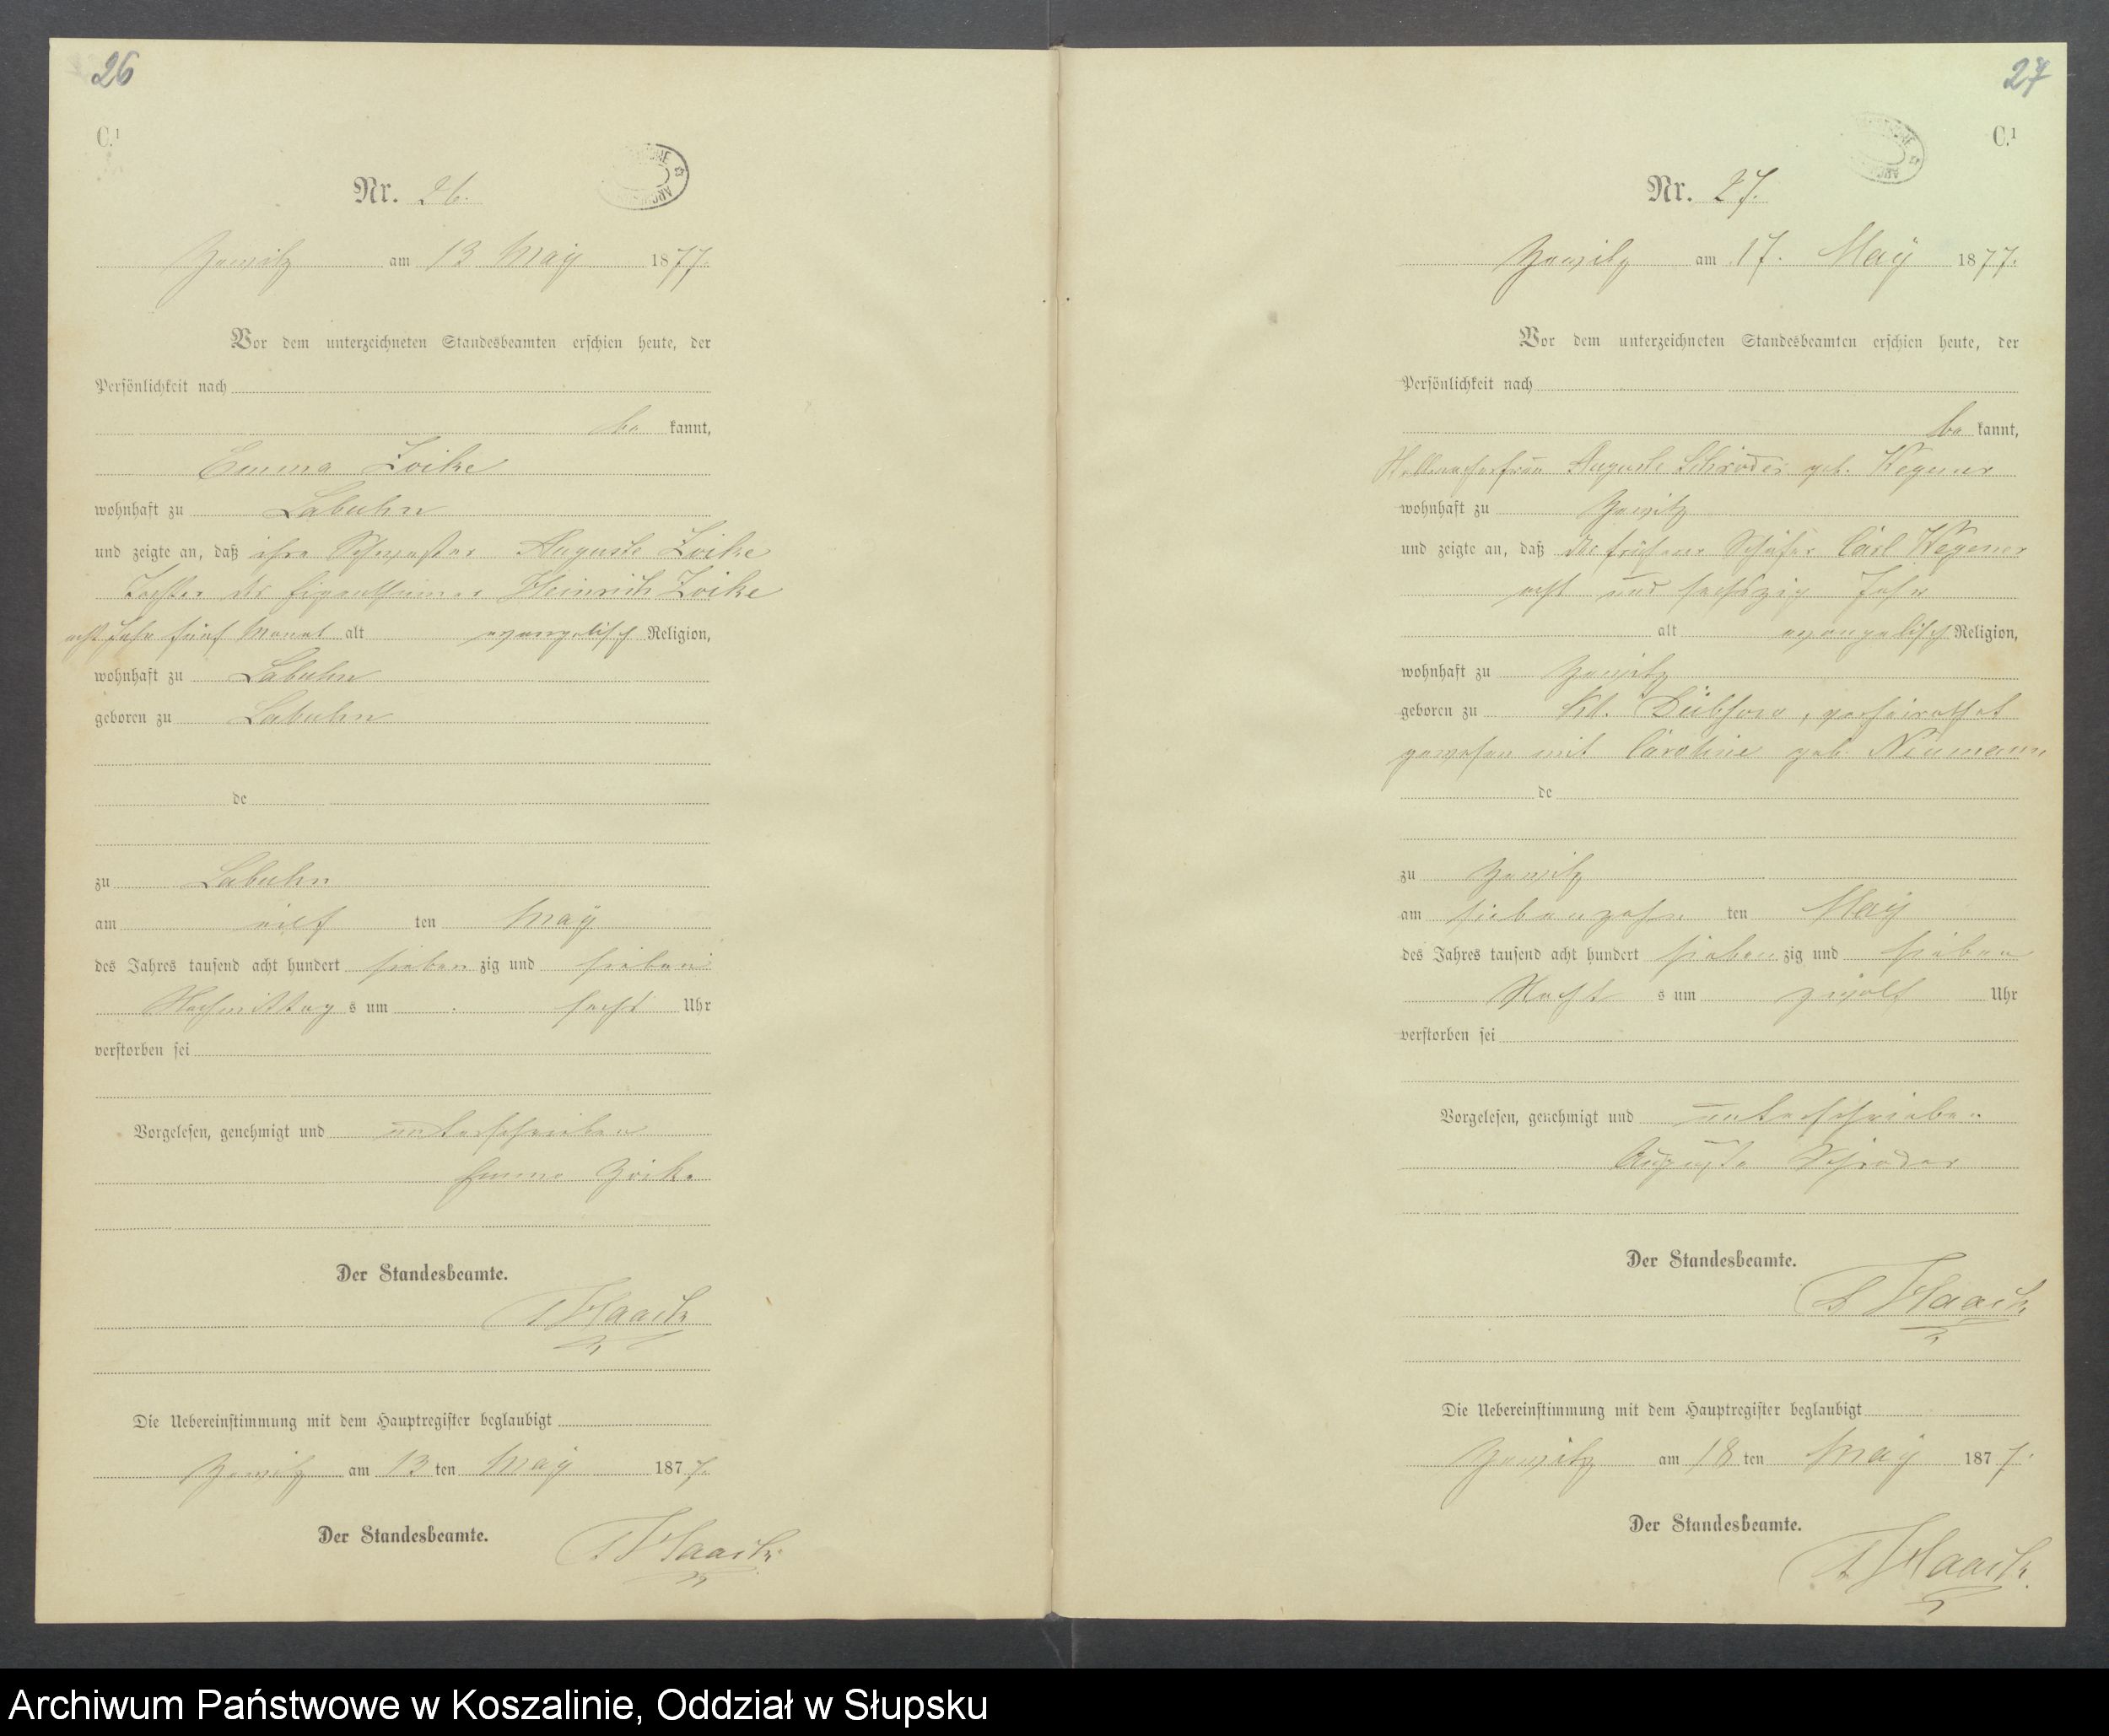 26
C.¹
Nr. 26.
Zewitz am 13 May 1877.
Vor dem unterzeichneten Standesbeamten erschien heute, der
Persönlichkeit nach
be kannt,
Emma Zoike
wohnhaft zu Labuhn
und zeigte an, daß ihre Schwester Auguste Zoike
Tochter des Eigenthümer Heinrich Zoike
acht Jahr fünf Monat alt evangelisch Religion,
wohnhaft zu Labuhn
geboren zu Labuhn
de
zu Labuhn
am eilf ten May
des Jahres tausend acht hundert sieben zig und sieben
Nachmittag s um sechs Uhr
verstorben sei
Vorgelesen, genehmigt und unterschrieben
Emma Zoike
Der Standesbeamte.
Haack
Die Uebereinstimmung mit dem Hauptregister beglaubigt
Zewitz am 13 ten May 1877.
Der Standesbeamte.
Haack
27
C.¹
Nr. 27.
Zewitz am 17. May 1877.
Vor dem unterzeichneten Standesbeamten erschien heute, der
Persönlichkeit nach
be kannt,
Auguste Schröder geb. Wegener
wohnhaft zu Zewitz
und zeigte an, daß der frühere Schäfer Carl Wegener
acht und sechszig Jahr
alt evangelisch Religion,
wohnhaft zu Zewitz
geboren zu Kl. Dübsow, verheirathet
gewesen mit Caroline geb. Neumann
de
zu Zewitz
am siebenzehn ten May
des Jahres tausend acht hundert sieben zig und sieben
Nacht s um zwölf Uhr
verstorben sei
Vorgelesen, genehmigt und unterschrieben
Auguste Schröder
Der Standesbeamte.
Haack
Die Uebereinstimmung mit dem Hauptregister beglaubigt
Zewitz am 18 ten May 1877.
Der Standesbeamte.
Haack
Archiwum Państwowe w Koszalinie, Oddział w Słupsku